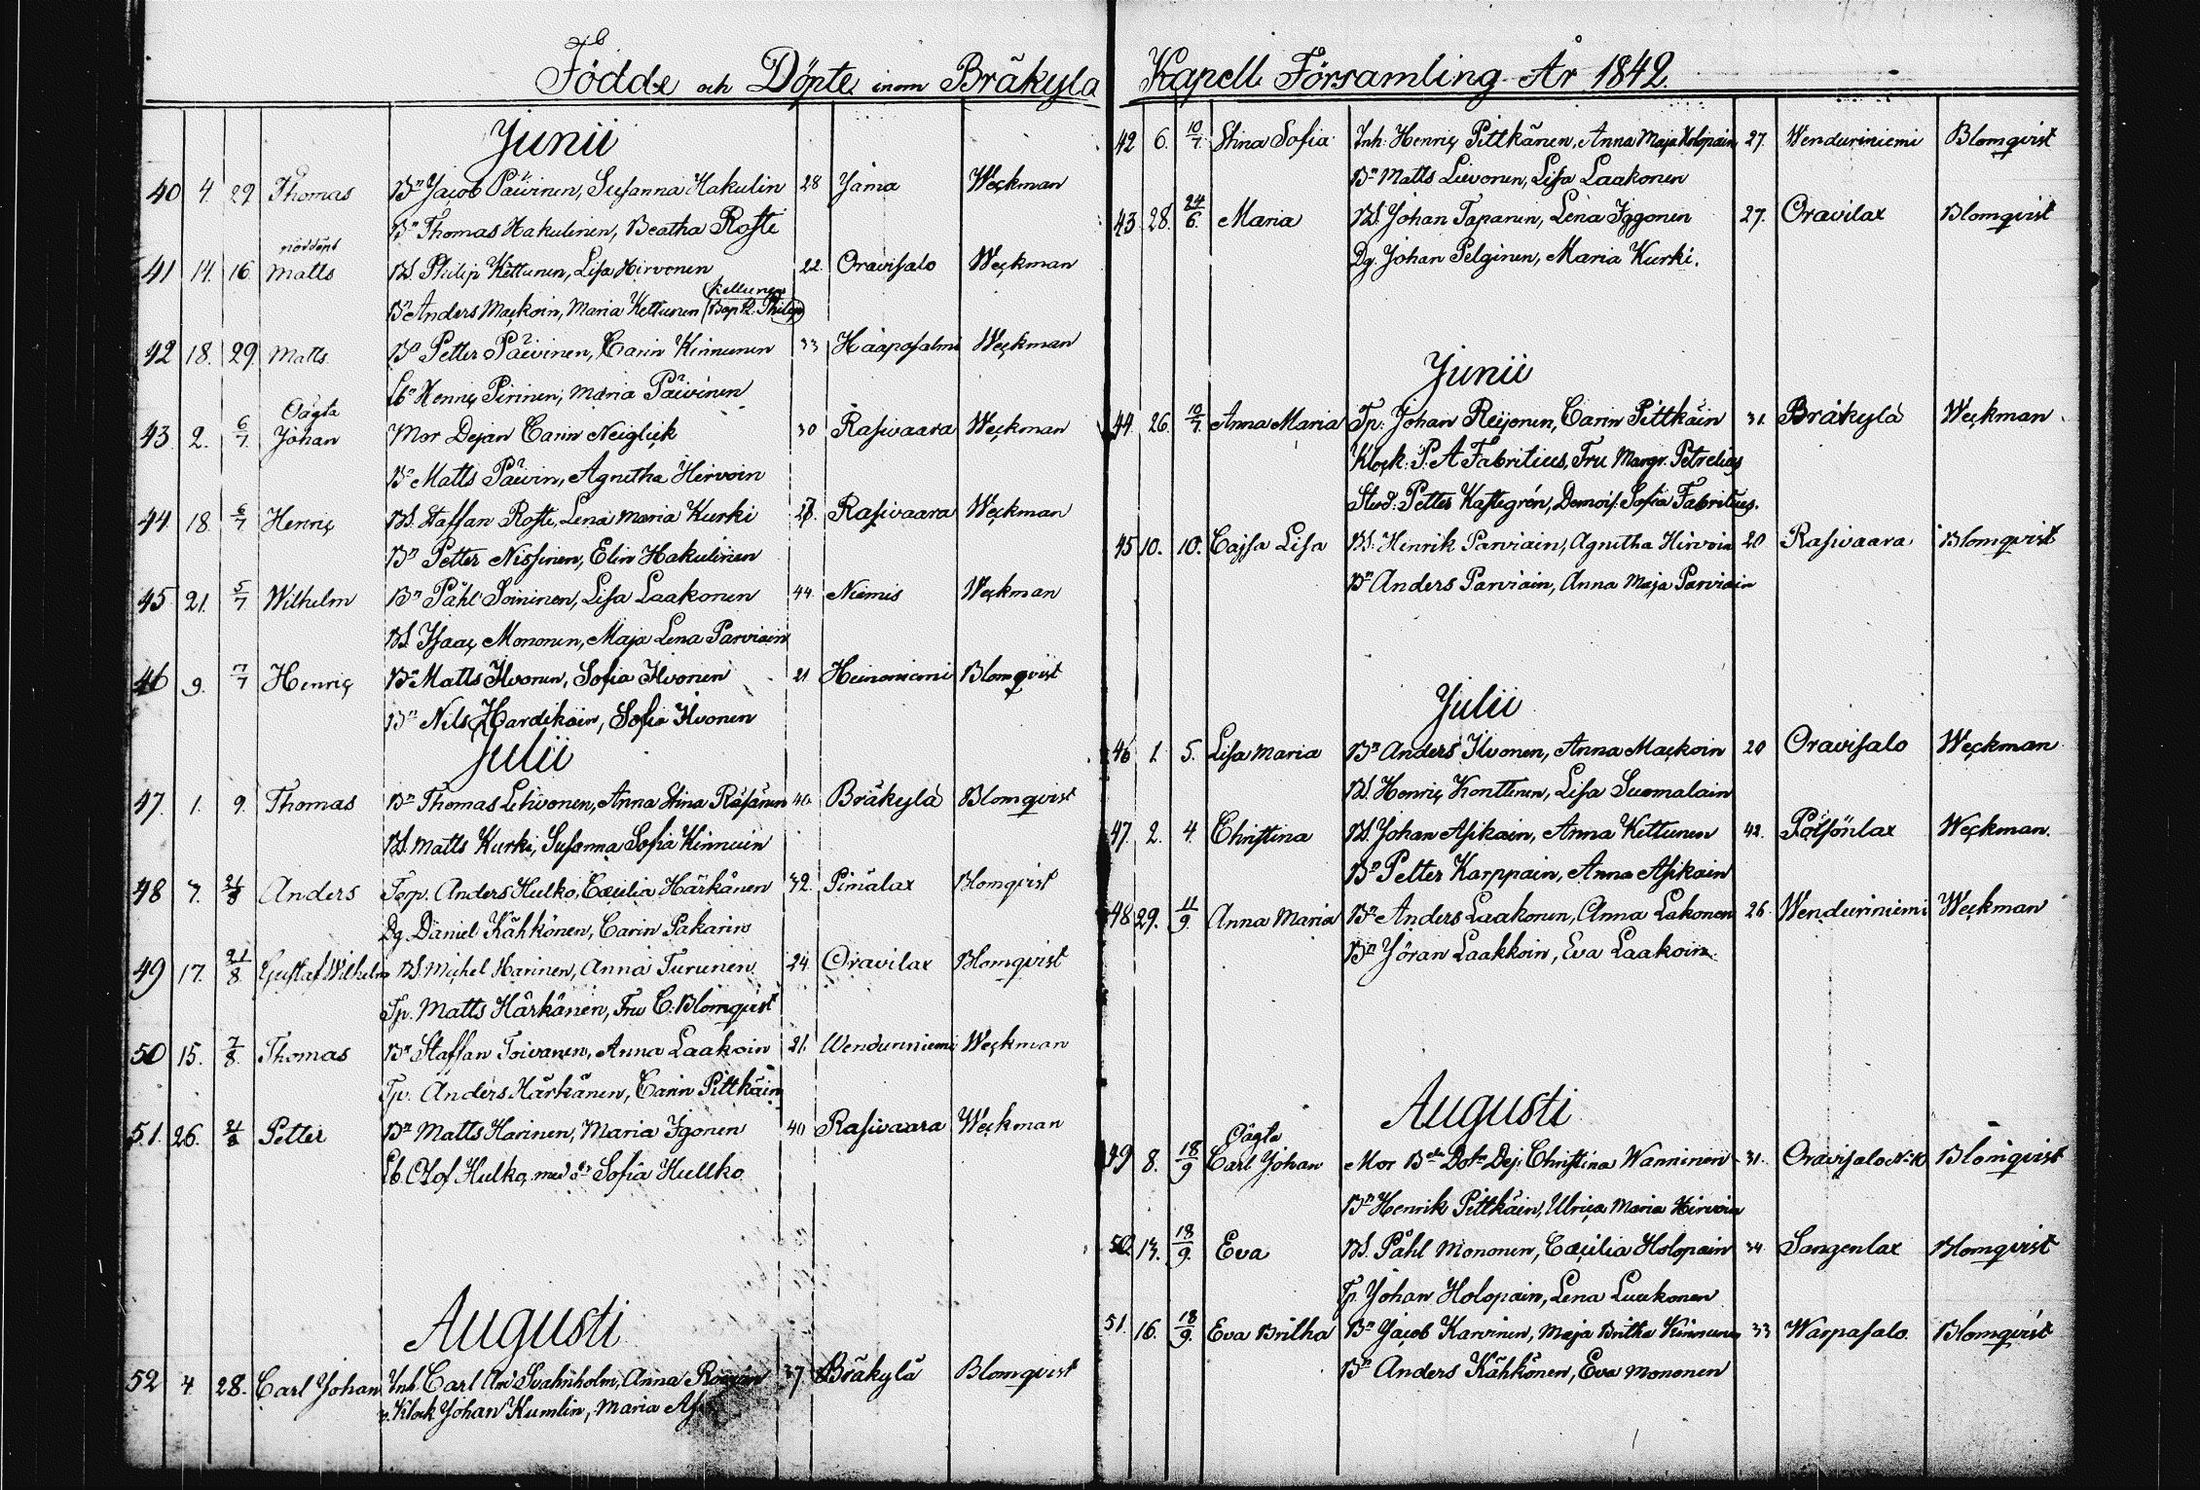 Födde och Döpte inom Bräkylä Kapell Församling År 1842.
Junii
40 4. 29 Thomas Bn Jacob Päivinen, Susanna Hakulin 28 Jama Weckman
Bn Thomas Hakulinen, Beatha Rosti
nöddöpt
41 14. 16. Matts BS. Philip Kettunen, Lisa Hirvonen 22. Oravisalo Weckman
Kettunen
Bn Anders Mackoin, Maria Kettunen Philip
42 18. 29. Matts Bn Petter Päivinen, Carin Kinnunen 33 Haaposalmi Weckman
Enk Henric Pirinen, Maria Päivinen
Oägta
43 2. 6/7 Johan Mor Dejan Carin Neiglick 30 Rasivaara Weckman
Bn Matts Päivin, Agnetha Hirvoin
44 18. 6/7 Henric BS. Staffan Rosti, Lena Maria Kurki 27. Rasivaara Weckman
Bn Petter Nissinen, Elin Hakulinen
45 21. 5/7 Wilhelm Bn Påhl Soininen, Lisa Laakonen 44. Niemis Weckman
BS. Isaac Mononen, Maja Lena Parviain
46 9. 7/7 Henric Bn Matts Ilvonen, Sofia Ilvonen 21 Heinoniemi Blomqvist
Bn Nils Hardikain, Sofia Ilvonen
Julii
47. 1. 9. Thomas Bn Thomas Lehvonen, Anna Stina Räsänen 40. Bräkylä Blomqvist
BS. Matts Kurki, Susanna Sofia Kinnuin
48 7. 21/8 Anders Torp. Anders Hulko, Cæcilia Härkänen 32. Pimälax Blomqvist
Dg. Daniel Kähkönen, Carin Pakarin
49 17. 21/8. Gustaf Wilhelm BS. Michel Harinen, Anna Turunen 24. Oravilax Blomqvist
Tp. Matts Härkänen, Fru C. Blomqvist
50 15. 7/8. Thomas Bn Staffan Toivanen, Anna Laakoin 21. Wenduriniemi Weckman
Tp. Anders Härkänen, Carin Pittkäin
51. 26. 21/8 Petter Bn Matts Harinen, Maria Igonen 40 Rasivaara Weckman
Olof Hulko, med Sofia Hullko
Augusti
52 4 28. Carl Johan Inh. Carl Svahnholm, Anna 37 Bräkylä Blomqvist
Klock Johan Kumlin, Maria
42 6. 10/7. Stina Sofia Inh. Henric Pittkänen, Anna Maja Holopain 27. Wenduriniemi Blomqvist
Bn Matts Lievonen, Lisa Laakonen
43. 28. 24/6. Maria BS. Johan Tapanin, Lena Iggonen 27. Oravilax Blomqvist
Dg. Johan Pelginen, Maria Kurki.
Junii
44. 26. 10/7. Anna Maria Tp. Johan Reijonen, Carin Pittkäin 31. Bräkylä Weckman
Klock. P. A Fabritius, Fru Margr. Petrelius
Stud. Petter Kastegrén, Demois. Sofia Fabritius.
45 10. 10. Cajsa Lisa BS. Hinrik Parviain, Agnetha Hirvoin 20 Rasivaara Blomqvist
Bn Anders Parviain, Anna Maja Parviain
Julii
46 1. 5. Lisa Maria Bn Anders Ilvonen, Anna Mackoin 20 Oravisalo Weckman
BS. Henric Konttinen, Lisa Suomalain
47. 2. 4. Christina BS. Johan Asikain, Anna Kettunen 42. Pötsönlax Weckman.
Bn Petter Karppain, Anna Asikain
48 29. 11/9. Anna Maria Bn Anders Laakonen, Anna Lakonen 26. Wenduriniemi Weckman
Bn Jöran Laakkoin, Eva Laakoin.
Augusti
Oägta
49 8. 18/9 Carl Johan Mor Dej. Christina Wanninen 31. Oravisalo No 10 Blomqvist
Bn Henrik Pittkäin, Ulrica Maria Hirvoin
50. 13. 18/9. Eva BS. Påhl Mononen, Cæcilia Holopain 34. Sangenlax Blomqvist
Tp. Johan Holopain, Lena Luukonen
51. 16. 18/9. Eva Britha Bn Jacob Karvinen, Maja Britha Kinnunen 33 Warpasalo. Blomqvist
Bn Anders Kähkönen, Eva Mononen